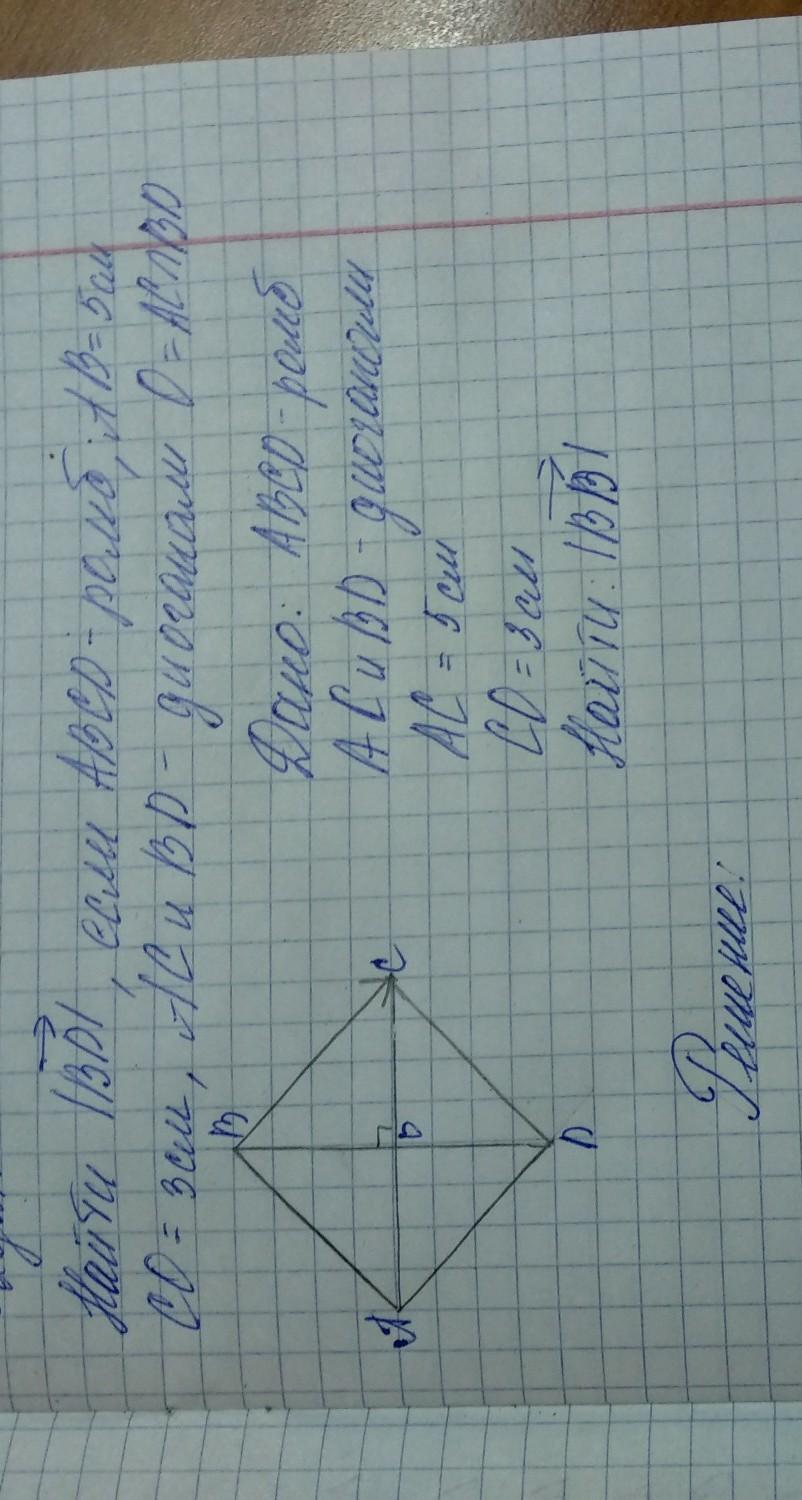 Найти |BD|, если ABCD - ромб, AB = 5 см
CO = 3 см, AC и BD - диогонали O = AC∩BD
Дано: ABCD - ромб
AC и BD - диогонали
AC = 5 см
CO = 3 см
Найти: |BB|
B
A
O
C
D
Решение: